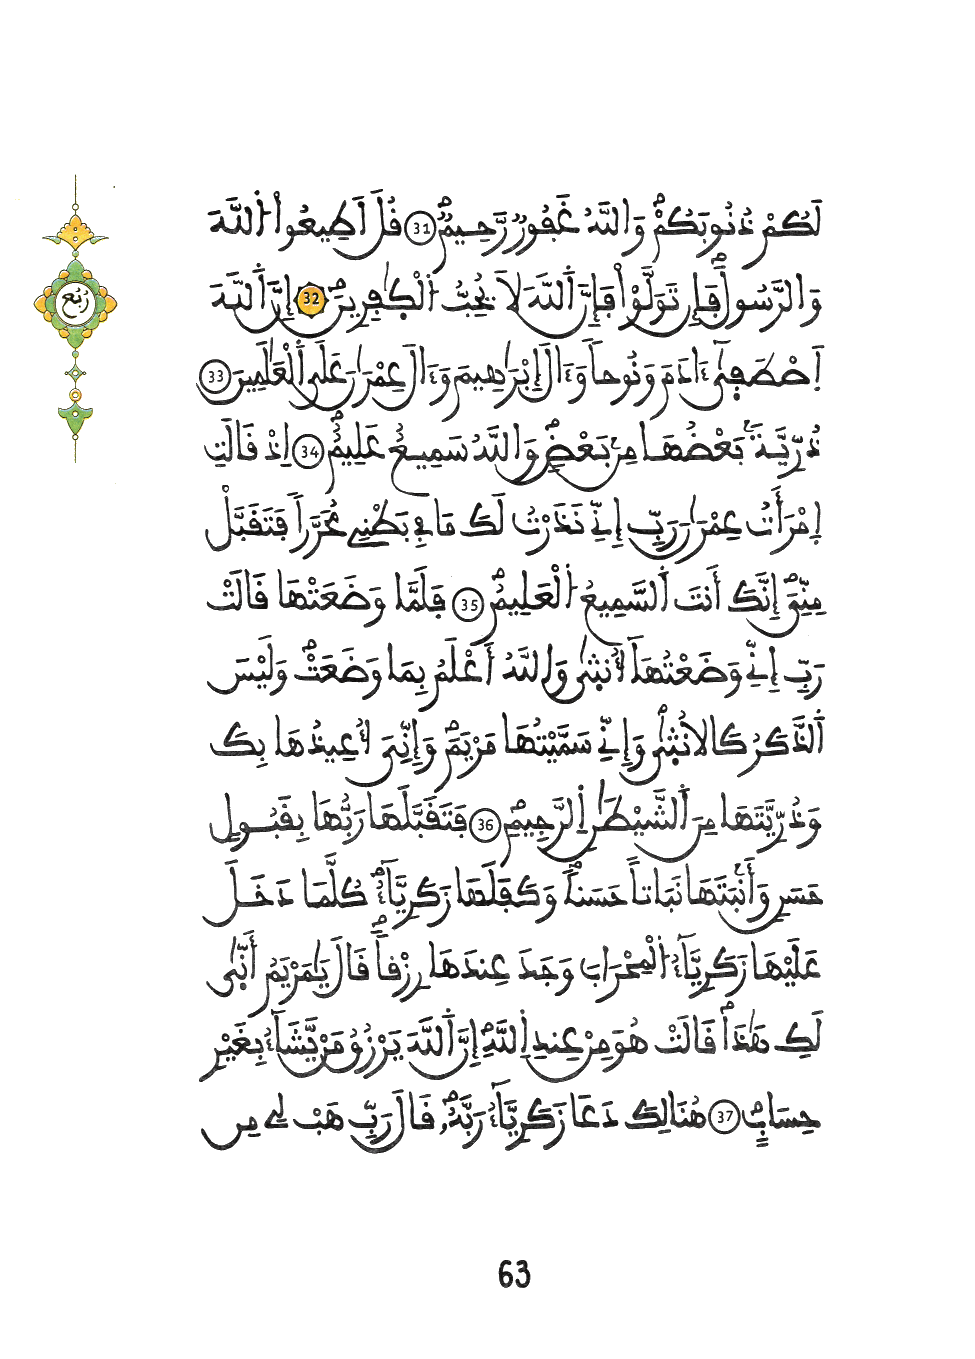 لَكُمْ ذُنُوبَكُمْ وَاللَّهُ غَفُورٌ رَّحِيمٌ 31 قُلْ أَطِيعُوا اْللَّهَ
وَالرَّسُولَ فَإِن تَوَلَّوْاْ فَإِنَّ اَللَّهَ لَا يُحِبُّ اُلْكَٰفِرِينَ 32 إِنَّ اَللَّهَ
ربع
اَصْطَفَىٰٓ ءَادَمَ وَنُوحاً وَءَالَ إِبْرَٰهِيمَ وَءَالَ عِمْرَٰنَ عَلَى اَلْعَٰلَمِينَ 33
ذُرِّيَّةَۢ بَعْضُهَا مِنۢ بَعْضٍ وَاللَّهُ سَمِيعٌ عَلِيمٌ 34 اِذْ قَالَتِ
اِمْرَأَتُ عِمْرَٰنَ رَبِّ إِنِّے نَذَرْتُ لَكَ مَا فِے بَطْنِے مُحَرَّراً فَتَقَبَّلْ
مِنِّىَ إِنَّكَ أَنتَ اَلسَّمِيعُ اُلْعَلِيمُ 35 فَلَمَّا وَضَعَتْهَا قَالَتْ
رَبِّ إِنِّے وَضَعْتُهَا أُنثَىٰ وَاللَّهُ أَعْلَمُ بِمَا وَضَعَتْ وَلَيْسَ
اَلذَّكَرُ كَالُانثَىٰ وَإِنِّے سَمَّيْتُهَا مَرْيَمَ وَإِنِّىَ أُعِيذُهَا بِكَ
وَذُرِّيَّتَهَا مِنَ اَلشَّيْطَٰنِ اِلرَّجِيمِ 36 فَتَقَبَّلَهَا رَبُّهَا بِقَبُولٍ
حَسَنٍ وَأَنۢبَتَهَا نَبَاتاً حَسَناً وَكَفَلَهَا زَكَرِيَّآءُ كُلَّمَا دَخَلَ
عَلَيْهَا زَكَرِيَّآءُ اُلْمِحْرَابَ وَجَدَ عِندَهَا رِزْقاً قَالَ يَٰمَرْيَمُ أَنَّىٰ
لَكِ هَٰذَا قَالَتْ هُوَ مِنْ عِندِ اِللَّهِ إِنَّ اَللَّهَ يَرْزُقُ مَنْ يَّشَآءُ بِغَيْرِ
حِسَابٍ 37 هُنَالِكَ دَعَا زَكَرِيَّآءُ رَبَّهُۥ قَالَ رَبِّ هَبْ لِے مِن
63